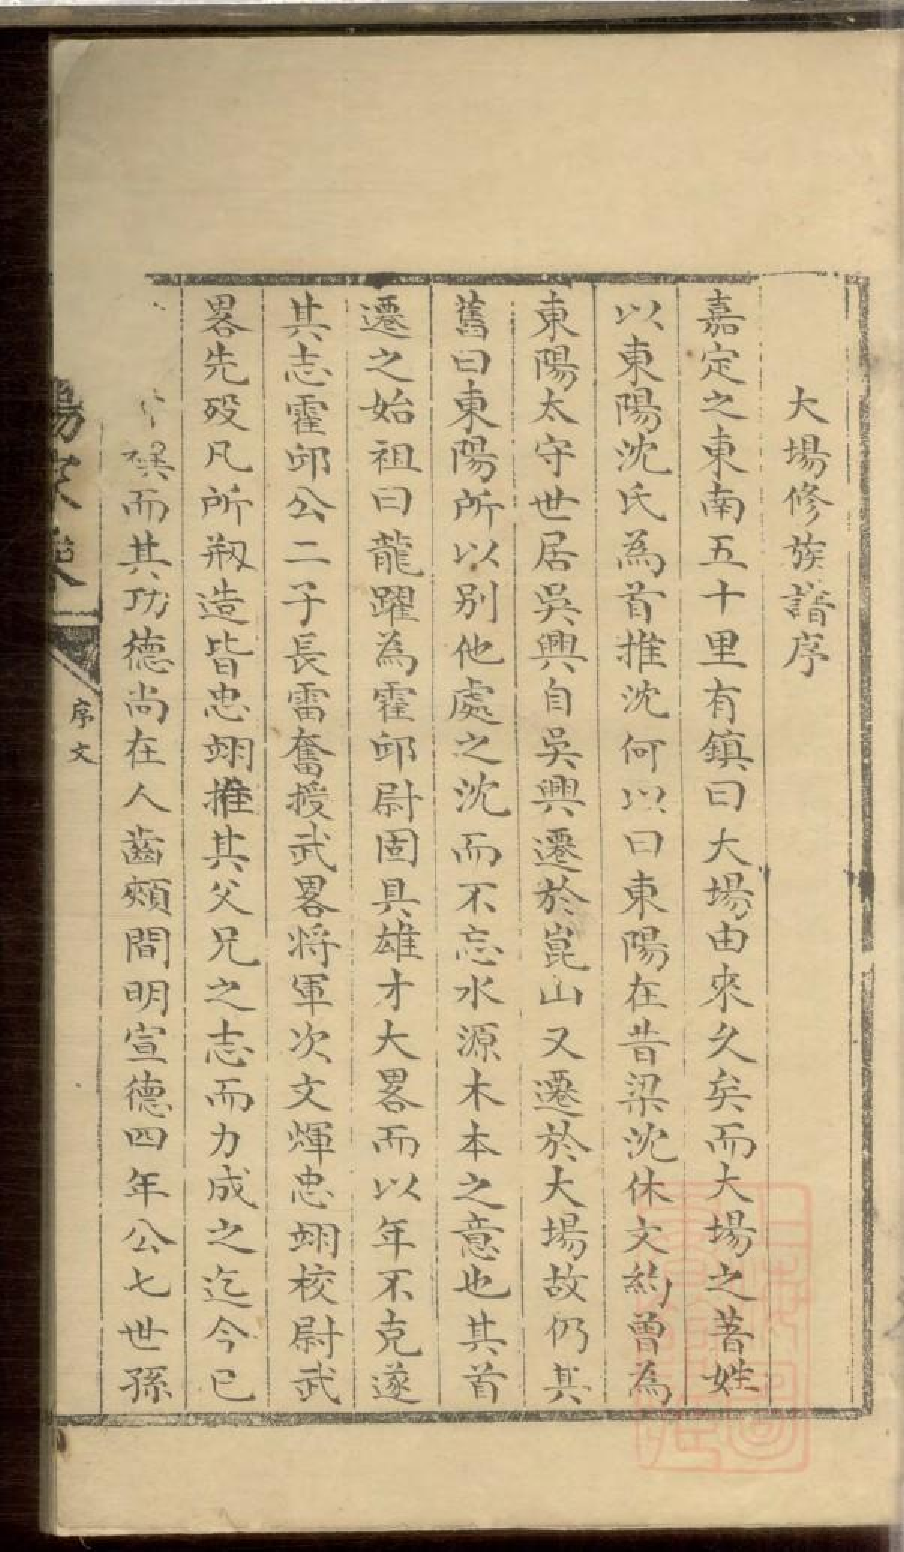 大場修族譜序
嘉定之東南五十里有鎮曰大場由來久矣而大場之著姓
以東陽沈氏為首推沈何以曰東陽在昔梁沈休文約曾為
東陽太守世居吳興自吳興遷於崑山又遷於大場故仍其
舊曰東陽所以別他處之沈而不忘水源木本之意也其首
遷之始祖曰龍躍為霍邱尉固具雄才大畧而以年不克遂
其志霍邱公二子長雷奮授武畧將軍次文煇忠翊校尉武
畧先歿凡所剏造皆忠翊推其父兄之志而力成之迄今已
禩而其功德尚在人齒頰間明宣德四年公七世孫
序文